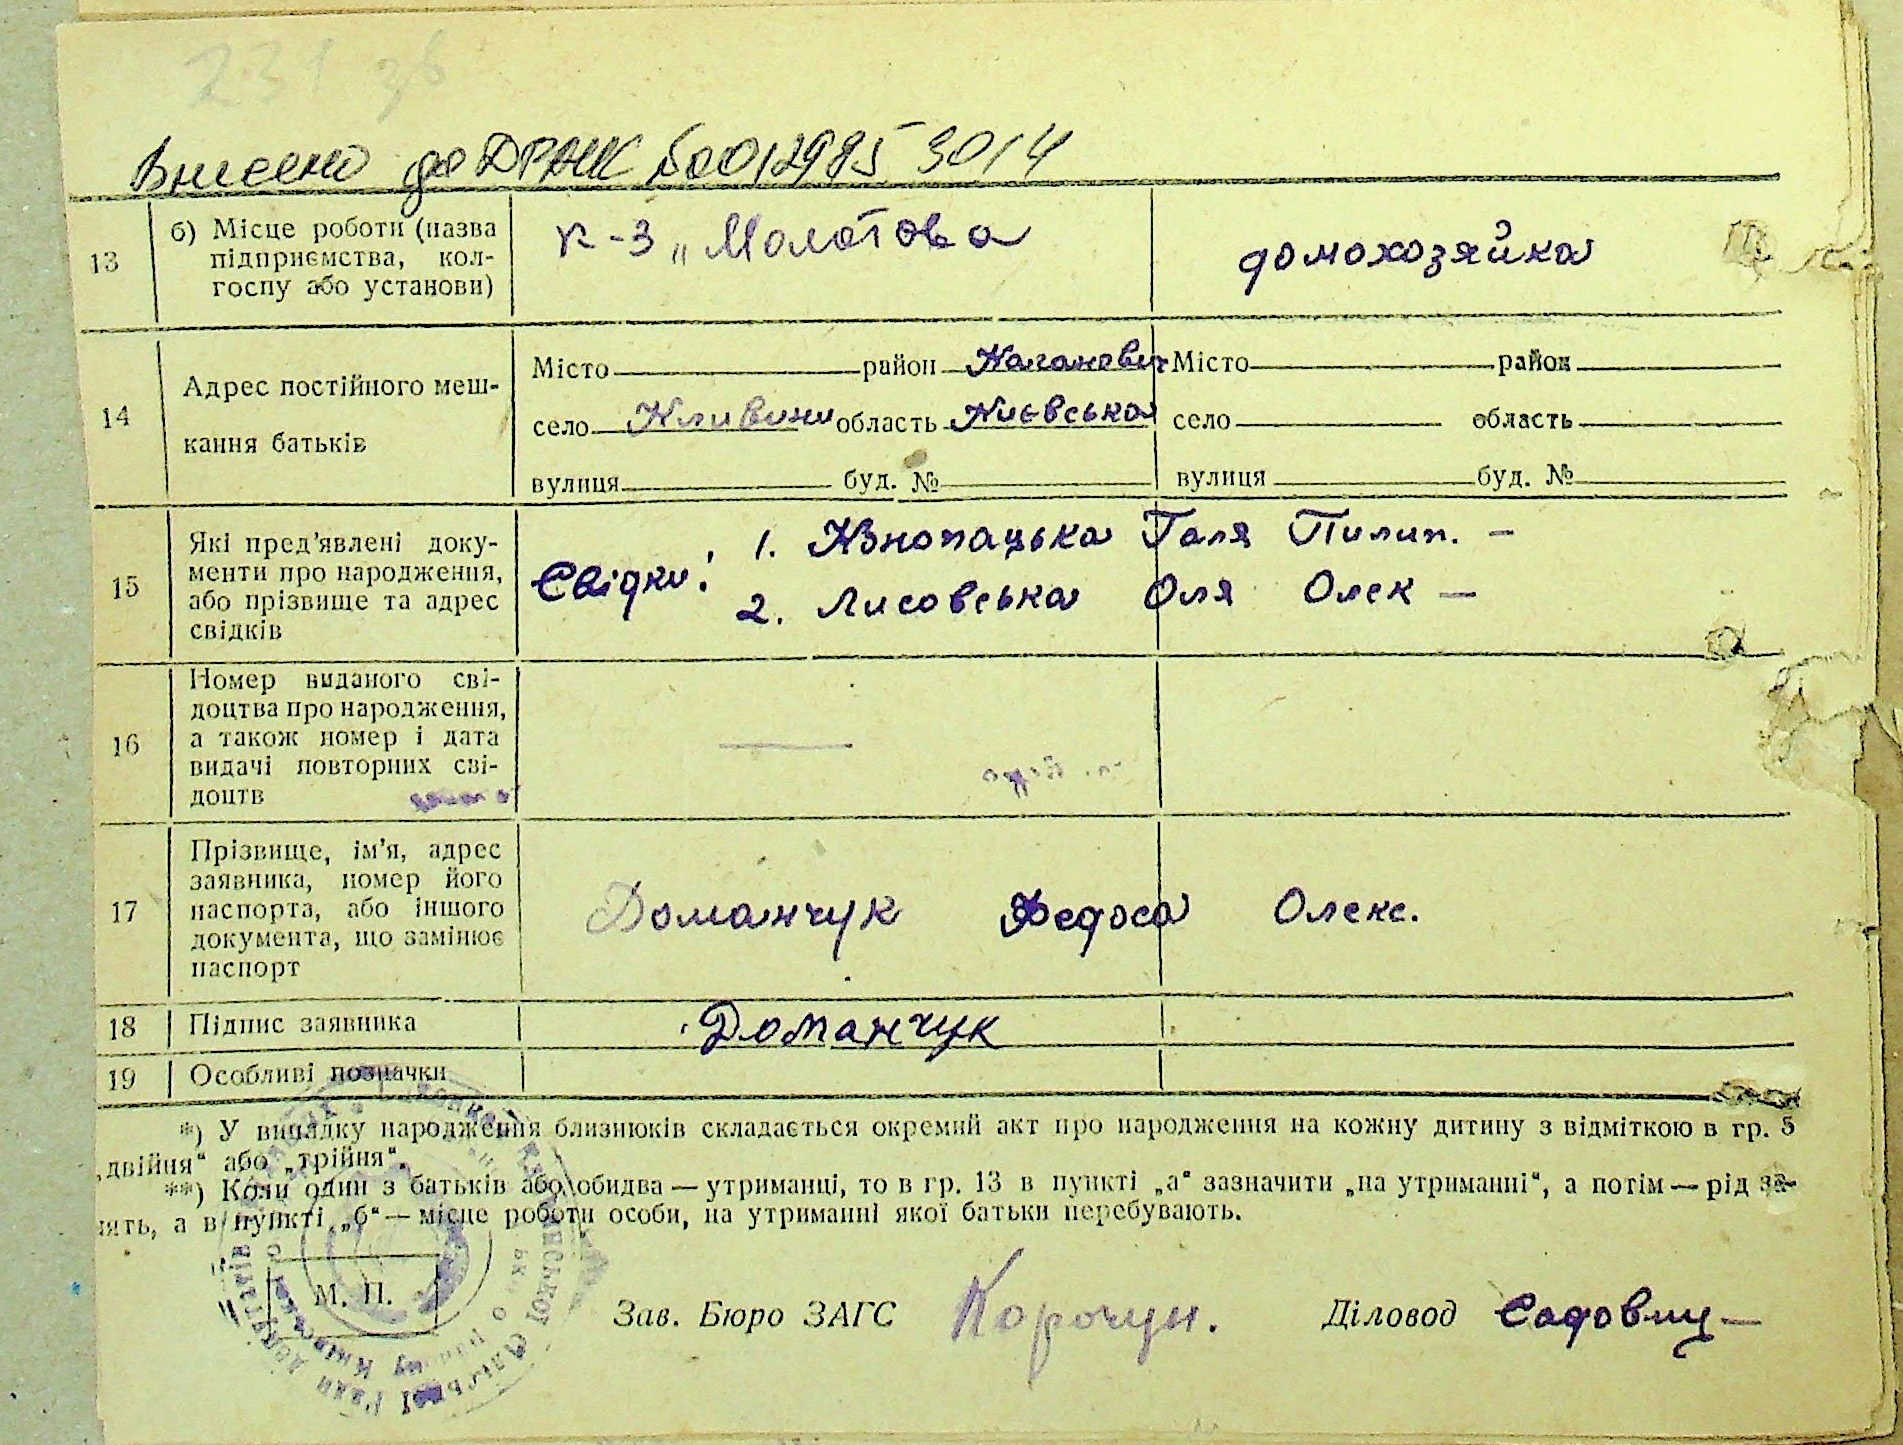 231 зв
Внесено до ДРАЦС №0012985 3014
13
б) Місце роботи (назва
підприємства, кол-
госпу або установи)
к-з „Молотова
домохозяйка
14
Адрес постійного меш-
кання батьків
Місто район Каганович Місто район
село Кливини область Києвська село область
вулиця буд. № вулиця буд. №
15
Які пред’явлені доку-
менти про народження,
або прізвище та адрес
свідків
Свідки: 1. Кнопацька Галя Пилип. –
2. Лисовська Оля Олек –
16
Номер виданого сві-
доцтва про народження,
а також номер і дата
видачі повторних сві-
доцтв
17
Прізвище, ім’я, адрес
заявника, номер його
паспорта, або іншого
документа, що замінює
паспорт
Доманчук Федоса Олекс.
18
Підпис заявника
Доманчук
19
Особливі позначки
*) У випадку народження близнюків складається окремий акт про народження на кожну дитину з відміткою в гр. 5
„двійня“ або „трійня“.
**) Коли один з батьків або обидва — утриманці, то в гр. 13 в пункті „а“ зазначити „на утриманні“, а потім — рід за-
нять, а в пункті „б“ — місце роботи особи, на утриманні якої батьки перебувають.
М. П.
Зав. Бюро ЗАГС Корочун. Діловод Садовщ –